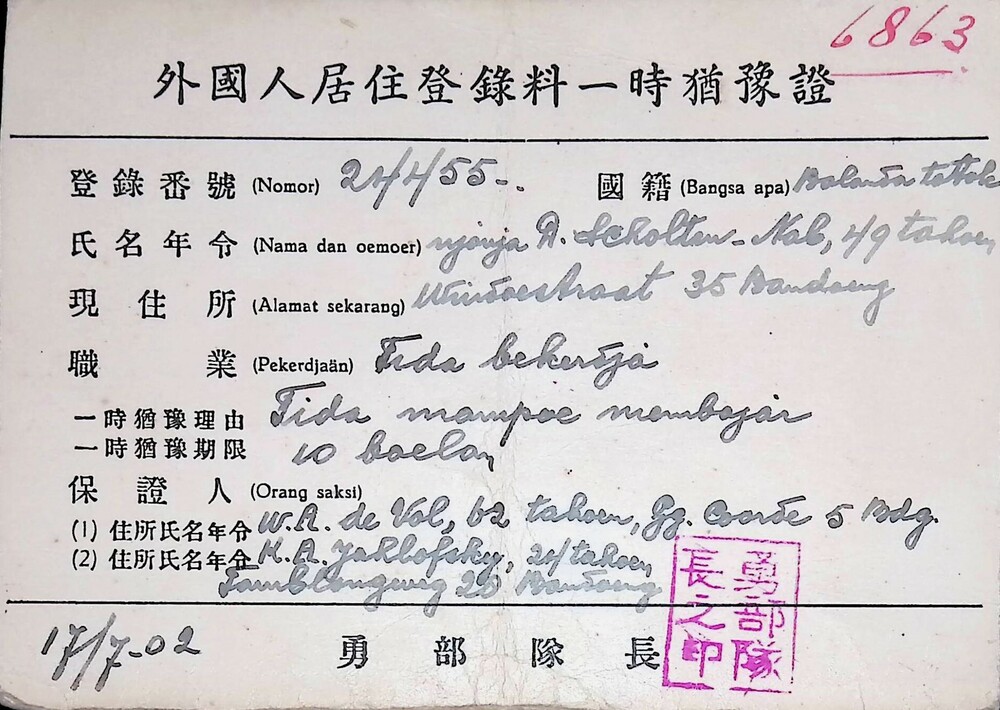 6863
外國人居住登錄料一時猶豫證
登錄番號 (Nomor) 24455-.. 國籍 (Bangsa apa) Balanda totok
氏名年令 (Nama dan oemoer) njonja A. Scholten-Nab, 49 tahoen
現住所 (Alamat sekarang) 35 Bandoeng
職業 (Pekerdjaän) Tida bekerdja
一時猶豫理由 Tida mampoe membajar
一時猶豫期限 10 boelan
保證人 (Orang saksi)
(1) 住所氏名年令 W.A. de Vol, 62 tahoen, Gg. Coorde 5 Bdg.
(2) 住所氏名年令 K.A. 24 tahoen,
Bandoeng
17/7-02 勇部隊長
勇部隊
長之印